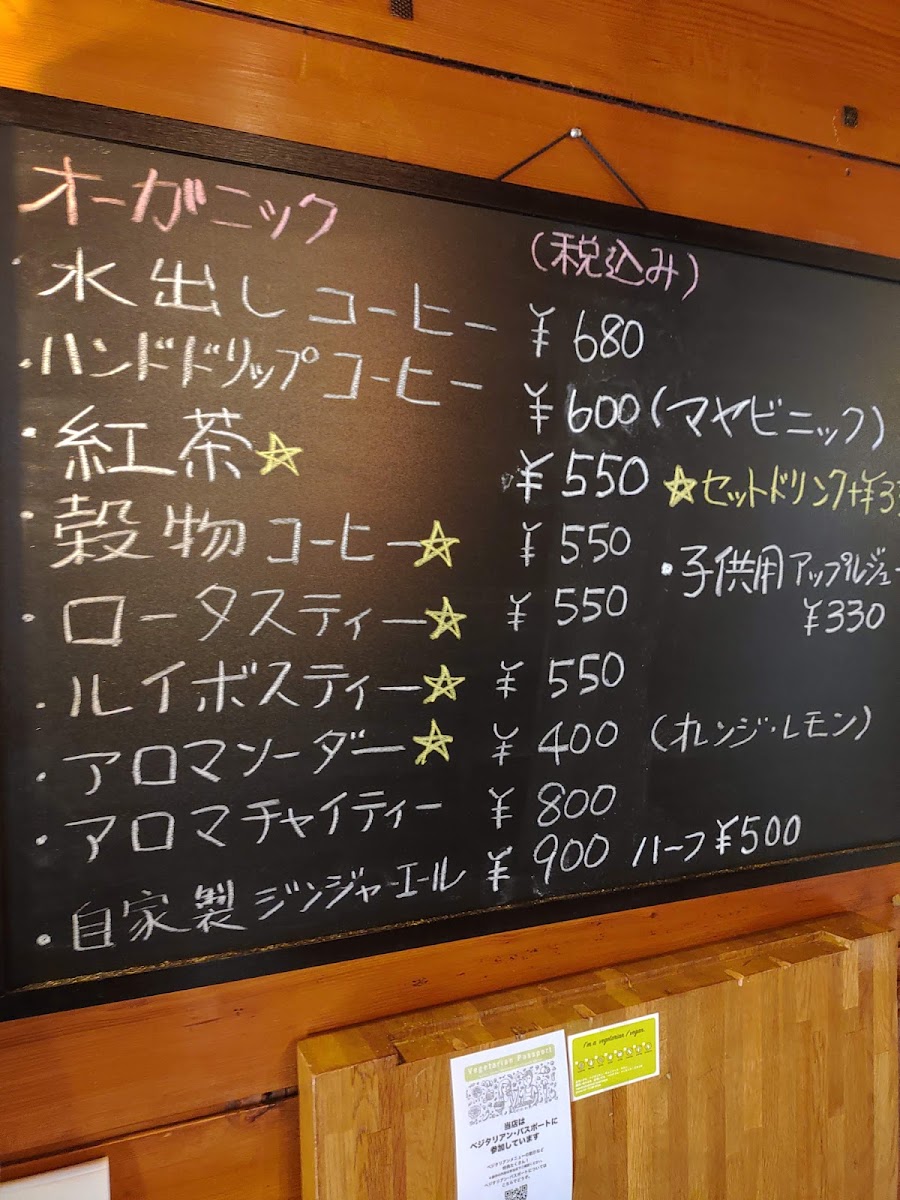 オーガニック
(税込み)
・水出しコーヒー ¥680
・ハンドドリップコーヒー ¥600(マヤビニック)
・紅茶☆ ¥550
☆セットドリンク+¥33
・穀物コーヒー☆ ¥550
・子供用アップルジュー
¥330
・ロータスティー☆ ¥550
・ルイボスティー☆ ¥550
・アロマソーダー☆ ¥400 (オレンジ・レモン)
・アロマチャイティー ¥800
・自家製ジンジャーエール ¥900 ハーフ¥500
Vegetarian Passport
当店は
ベジタリアン・パスポートに
参加しています
I'm a vegetarian / vegan.